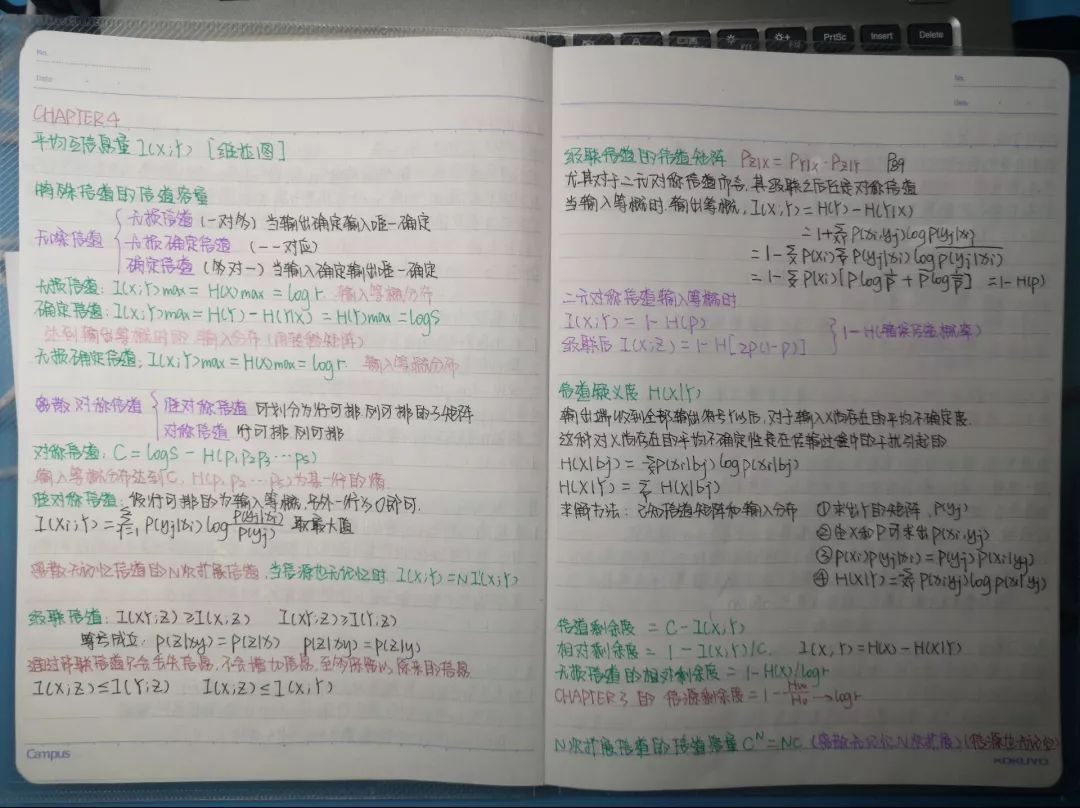 PrtSc
Insert
Delete
No.
Date
CHAPTER 4
平均互信息量 I(X;Y) [维拉图]
特殊信道的信道容量
无噪信道
无损信道 (一对多) 当输出确定输入唯一确定
无损确定信道 (一一对应)
确定信道 (多对一) 当输入确定输出唯一确定
无损信道: I(X;Y)max = H(X)max = log r. 输入等概分布
确定信道: I(X;Y)max = H(Y) - H(Y|X) = H(Y)max = log S
达到输出等概时的输入分布 (用转移矩阵)
无损确定信道: I(X;Y)max = H(X)max = log r. 输入等概分布
离散对称信道
准对称信道 可划分为行可排列可排的子矩阵
对称信道 行可排,列可排
对称信道: C = log S - H(P₁P₂P₃ ⋯ Ps)
输入等概分布达到C, H(P₁ P₂ ⋯ Ps)为某一行的熵
准对称信道: 行可排的为输入等概,另外一行为0即可.
I(Xi;Y) = ∑ j=1 s P(yj|xi) log P(yj|xi)/P(yj) 取最大值
离散无记忆信道的N次扩展信道,当信源也无记忆时 I(X;Y) = N I(X;Y)
级联信道: I(XY;Z) ≥ I(X;Z) I(XY;Z) ≥ I(Y;Z)
等号成立: P(Z|xy) = P(Z|x) P(Z|xy) = P(Z|y)
通过串联信道只会丢失信息,不会增加信息,至多保持原来的信息
I(X;Z) ≤ I(Y;Z) I(X;Z) ≤ I(X;Y)
Campus
No.
Date
级联信道的信道矩阵 PZ|X = PY|X · PZ|Y P89
尤其对于二元对称信道而言,其级联之后还是对称信道
当输入等概时,输出等概, I(X;Y) = H(Y) - H(Y|X)
= 1 + ∑XY P(xi,yj) log P(yj|xi)
= 1 - ∑X P(xi) ∑Y P(yj|xi) log P(yj|xi)
= 1 - ∑X P(xi) [P log 1/P + P̄ log 1/P̄] = 1 - H(P)
二元对称信道输入等概时
I(X;Y) = 1 - H(P)
级联后 I(X;Z) = 1 - H[2P(1-P)]
1 - H(错误传递概率)
信道疑义度 H(X|Y)
输出端收到全部输出符号Y以后,对于输入X尚存在的平均不确定度.
这种对X尚存在的平均不确定性是在传输过程中的干扰引起的
H(X|bj) = -∑X P(xi|bj) log P(xi|bj)
H(X|Y) = ∑Y H(X|bj)
求解方法: 已知信道矩阵和输入分布 ①求出Y的矩阵, P(yj)
②由X和P可求出 P(xi,yj)
③P(xi)P(yj|xi) = P(yj)P(xi|yj)
④ H(X|Y) = ∑XY P(xi yj) log P(xi|yj)
信道剩余度 = C - I(X;Y)
相对剩余度 = 1 - I(X;Y)/C. I(X;Y) = H(X) - H(X|Y)
无损信道的相对剩余度 = 1 - H(X)/log r
CHAPTER 3 的 信源剩余度 = 1 - H∞/H₀ → log r
N次扩展信道的信道容量 C^N = NC (离散无记忆N次扩展) (信源也无记忆)
KOKUYO